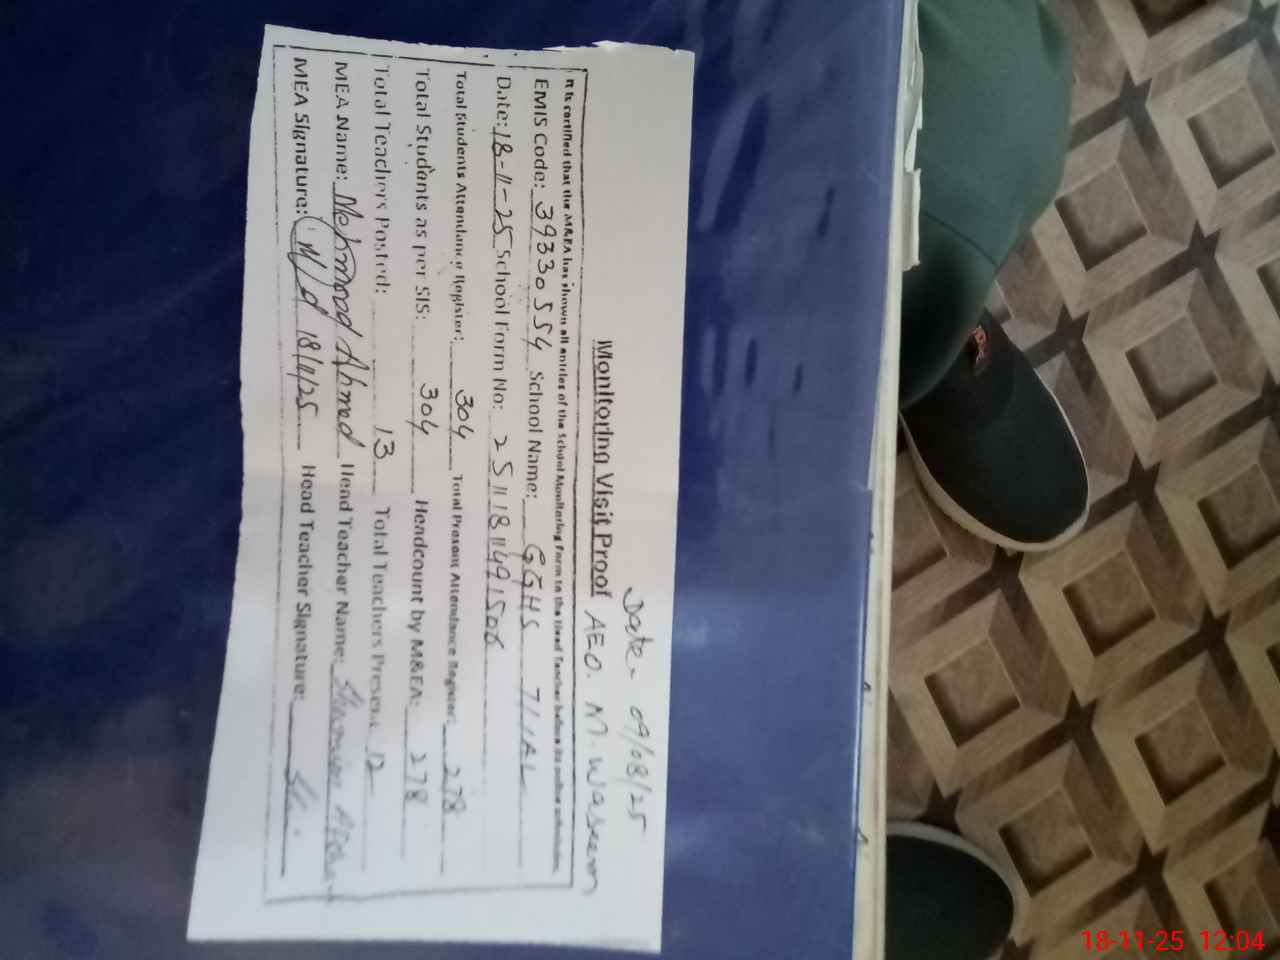 Date- 09/08/25
Monitoring Visit Proof AEO. M. Waseem
It is certified that the M&EA has shown all entries of the School Monitoring Form to the Head Teacher before its online submission.
EMIS Code: 39330554 School Name: GGHS 71/AL
Date: 18-11-25 School Form No: 251118114915
Total Students Attendance Register: 304 Total Present Attendance Register: 278
Total Students as per SIS: 304 Headcount by M&EA: 278
Total Teachers Posted: 13 Total Teachers Present: 12
MEA Name: Mehmood Ahmed Head Teacher Name:
MEA Signature: 18/11/25 Head Teacher Signature:
18-11-25 12:04